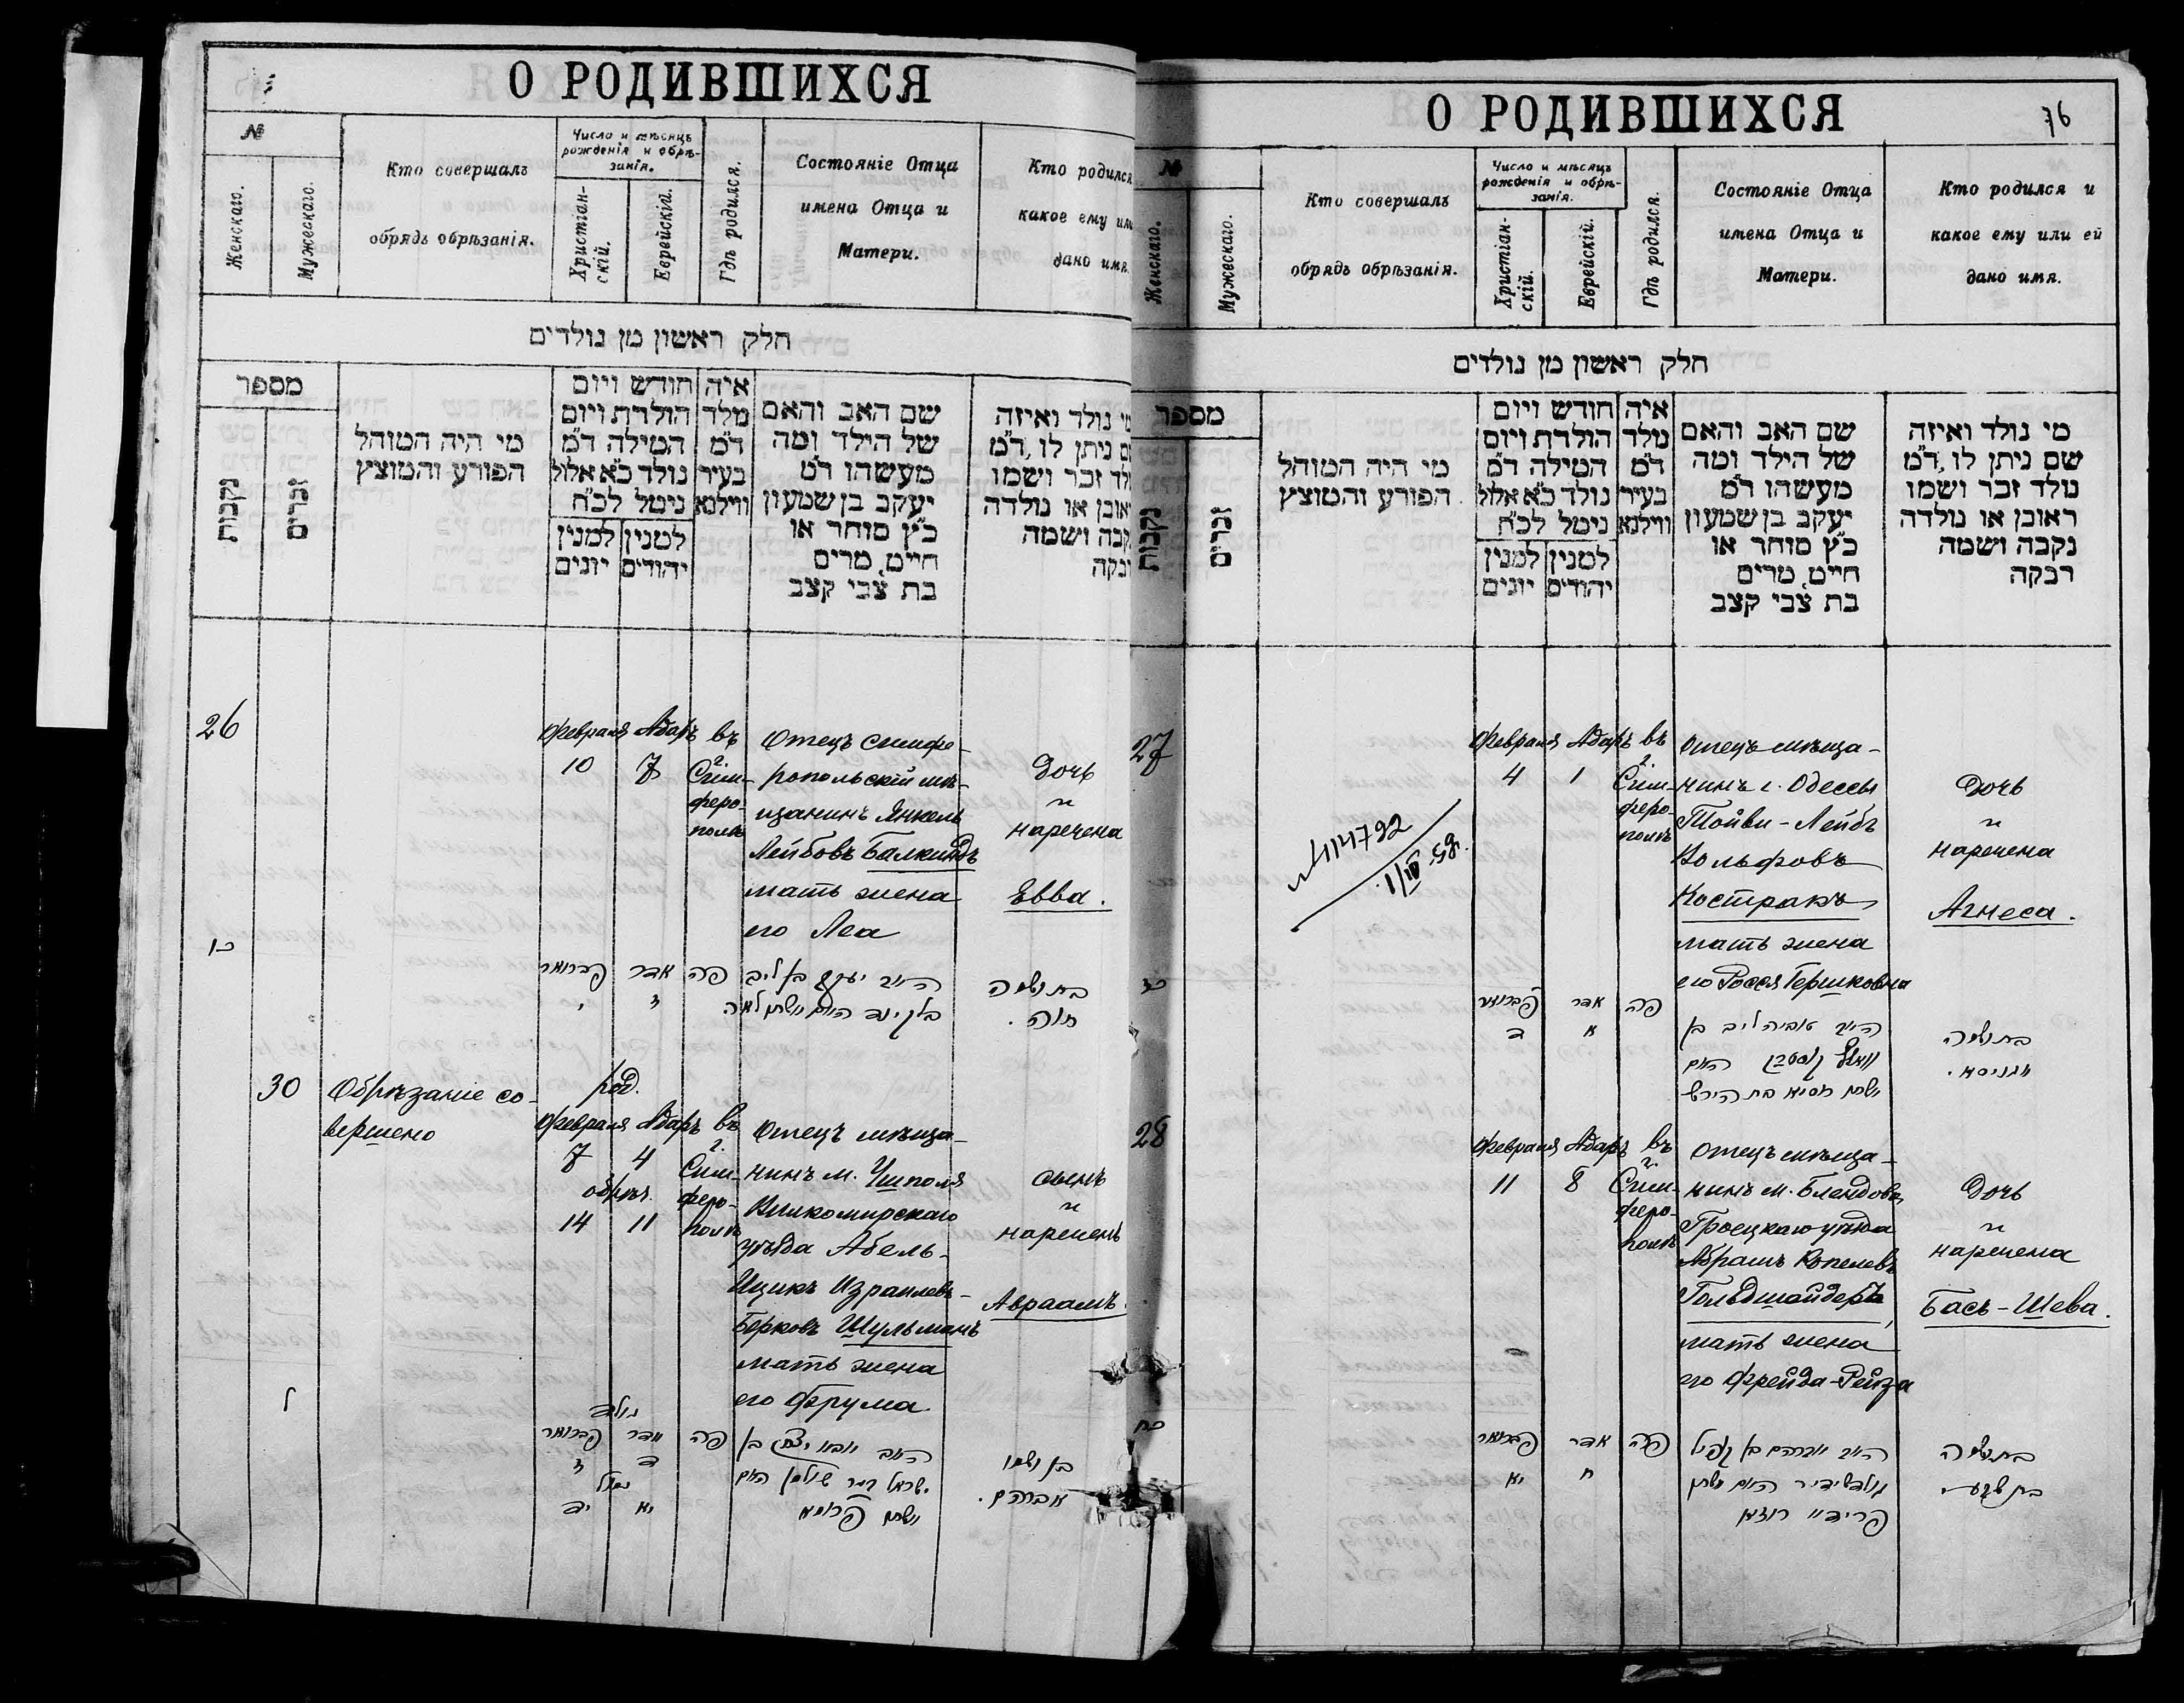 О РОДИВШИХСЯ
№
Женскаго.
Мужескаго.
Кто совершалъ
обрядъ обрѣзанія.
Число и мѣсяцъ
рожденія и обрѣ-
занія.
Христіан-
скій.
Еврейскій.
Гдѣ родился.
Состояніе Отца
имена Отца и
Матери.
Кто родился
какое ему или
дано имя.
חלק ראשון מן נולדים
מספר
נקבות
זכרים
מי היה המוהל
הפורע והמוצץ
חודש ויום
הולדת ויום
המילה ד״מ
נולד כ״א אלול
נימל לכ״ח
למנין למנין
יהודים יונים
איה
מלד
ד״מ
בעיר
ווילנא
שם האב והאם
של הילד ומה
מעשהו ד״מ
יעקב בן שמעון
כ״ץ סוחר או
חייט, מרים
בת צבי קצב
מי נולד ואיזה
שם ניתן לו, ד״מ
נולד זכר ושמו
ראובן או נולדה
נקבה ושמה
26
Февраля Адаръ
10 7
въ
г.
Сим-
феро-
поль
Отецъ симфе-
ропольскій мѣ-
щанинъ Янкель
Лейбовъ Балкиндъ
мать жена
его Леа
Дочь
и
наречена
Евва.
פברואר אדר פה
י ז
האב יעקב בן ליב
בלקינד האם אשתו לאה
בת ושמה
חוה.
30
Обрѣзаніе со-
вершено
род.
Февраля Адаръ
7 4
обрѣз.
14 11
въ
г.
Сим-
феро-
поль
Отецъ мѣща-
нинъ м. Ушполя
Вилкомирскаго
уѣзда Абель-
Ицикъ Израилевъ-
Берковъ Шульманъ
мать жена
его Фрума
сынъ
и
нареченъ
Авраамъ.
ל
נולד
פברואר אדר פה
ז ד
נמול
יד יא
אשתו פרומא
בן ושמו
אברהם.
О РОДИВШИХСЯ
76
№
Женскаго.
Мужескаго.
Кто совершалъ
обрядъ обрѣзанія.
Число и мѣсяцъ
рожденія и обрѣ-
занія.
Христіан-
скій.
Еврейскій.
Гдѣ родился.
Состояніе Отца
имена Отца и
Матери.
Кто родился и
какое ему или ей
дано имя.
חלק ראשון מן נולדים
מספר
נקבות
זכרים
מי היה המוהל
הפורע והמוצץ
חודש ויום
הולדת ויום
המילה ד״מ
נולד כ״א אלול
נימל לכ״ח
למנין למנין
יהודים יונים
איה
נולד
ד״מ
בעיר
ווילנא
שם האב והאם
של הילד ומה
מעשהו ד״מ
יעקב בן שמעון
כ״ץ סוחר או
חייט, מרים
בת צבי קצב
מי נולד ואיזה
שם ניתן לו, ד״מ
נולד זכר ושמו
ראובן או נולדה
נקבה ושמה
רבקה
27
1/III 59.
Февраля Адаръ
4 1
въ
г.
Сим-
феро-
поль
Отецъ мѣща-
нинъ г. Одессы
Тойви-Лейбъ
Вольфовъ
Костракъ
мать жена
его Рося Гершковна
Дочь
и
наречена
Агнеса.
כז
פברואר אדר פה
ד א
האב טוביה ליב בן
האם
אשתו רוסיא בת הירש
בת ושמה
28
Февраля Адаръ
11 8
въ
г.
Сим-
феро-
поль
Отецъ мѣща-
нинъ м. Блендова,
Гроецкаго уѣзда
Абрамъ Копелевъ
Гольдшайдеръ,
мать жена
его Фрейда-Рейза
Дочь
и
наречена
Бася-Шева.
כח
פברואר אדר פה
יא ח
האב אברהם בן קפיל
גולדשיידיר האם אשתו
פריידא רייזא
בת ושמה
בת שבע